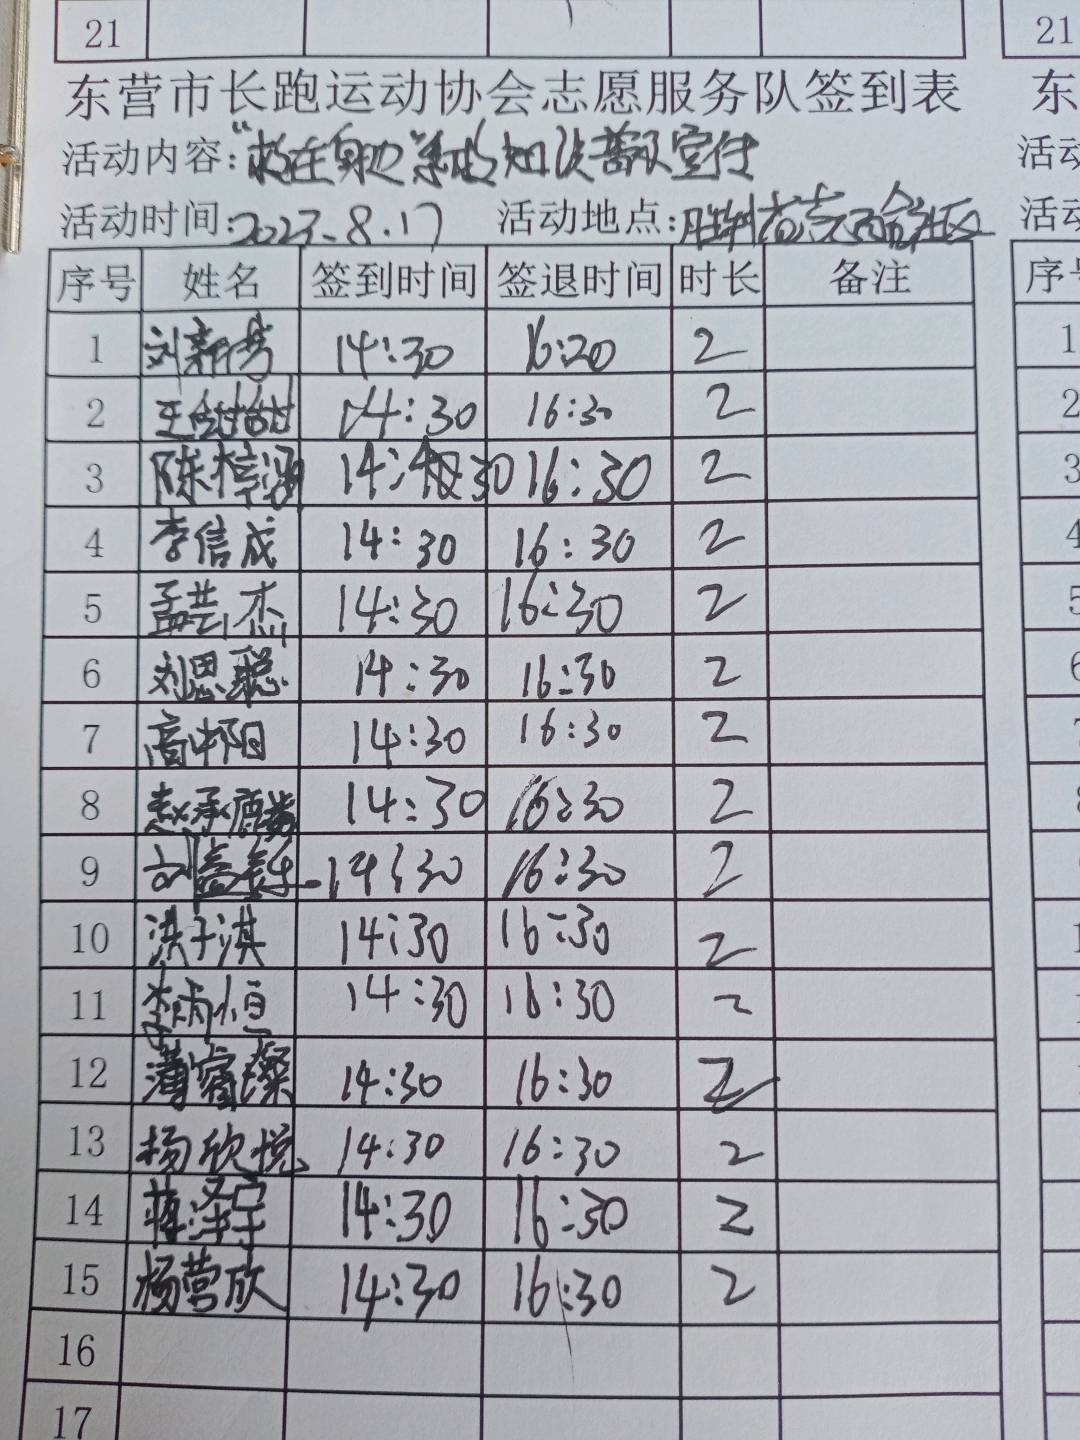 21 21
东营市长跑运动协会志愿服务队签到表 东
活动内容:“救在身边”知识普及宣传 活动
活动时间:2023.8.17 活动地点:胜利 社区 活动
序号 姓名 签到时间 签退时间 时长 备注 序号
1 刘新 14:30 16:20 2 1
2 王 14:30 16:30 2 2
3 陈梓涵 14:30 16:30 2 3
4 李信成 14:30 16:30 2 4
5 孟芸杰 14:30 16:30 2 5
6 刘思聪 14:30 16:30 2 6
7 高 阳 14:30 16:30 2 7
8 赵承 14:30 16:30 2 8
9 刘 14:30 16:30 2
10 洪子淇 14:30 16:30 2 1
11 李炳恒 14:30 16:30 2 1
12 蒲睿璨 14:30 16:30 2
13 杨欣悦 14:30 16:30 2
14 蒋泽宇 14:30 16:30 2
15 杨营欣 14:30 16:30 2
16
17